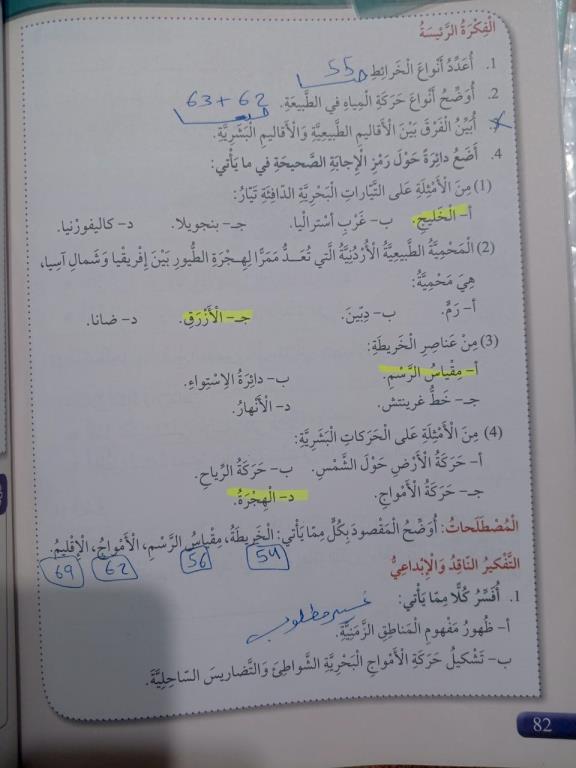 الْفِكْرَةُ الرَّئِيسَةُ
1. أُعَدِّدُ أَنْوَاعَ الْخَرَائِطِ. 55
2. أُوَضِّحُ أَنْوَاعَ حَرَكَةِ الْمِيَاهِ فِي الطَّبِيعَةِ. 62 + 63
أُبَيِّنُ الْفَرْقَ بَيْنَ الْأَقَالِيمِ الطَّبِيعِيَّةِ وَالْأَقَالِيمِ الْبَشَرِيَّةِ.
4. أَضَعُ دَائِرَةً حَوْلَ رَمْزِ الْإِجَابَةِ الصَّحِيحَةِ فِي مَا يَأْتِي:
(1) مِنَ الْأَمْثِلَةِ عَلَى التَّيَّارَاتِ الْبَحْرِيَّةِ الدَّافِئَةِ تَيَّارُ:
أ- الْخَلِيجِ. ب- غَرْبِ أُسْتَرَالْيَا. جـ- بنجويلا. د- كاليفورْنيا.
(2) الْمَحْمِيَّةُ الطَّبِيعِيَّةُ الْأُرْدُنِيَّةُ الَّتِي تُعَـدُّ مَمَرًّا لِهِجْرَةِ الطُّيورِ بَيْنَ إِفْرِيقْيا وَشَمَالِ آسِيا،
هِيَ مَحْمِيَّةُ:
أ- رَمٍّ. ب- دِبِّينَ. جـ- الْأَزْرَقِ. د- ضانا.
(3) مِنْ عَنَاصِرِ الْخَرِيطَةِ:
أ- مِقْيَاسُ الرَّسْمِ. ب- دَائِرَةُ الِاسْتِواءِ.
جـ- خَطُّ غرينتش. د- الْأَنْهَارُ.
(4) مِنَ الْأَمْثِلَةِ عَلَى الْحَرَكَاتِ الْبَشَرِيَّةِ:
أ- حَرَكَةُ الْأَرْضِ حَوْلَ الشَّمْسِ. ب- حَرَكَةُ الرِّيَاحِ.
جـ- حَرَكَةُ الْأَمْوَاجِ. د- الْهِجْرَةُ.
الْمُصْطَلَحَاتُ: أُوَضِّحُ الْمَقْصُودَ بِكُلٍّ مِمَّا يَأْتِي: الْخَرِيطَةُ، مِقْيَاسُ الرَّسْمِ، الْأَمْوَاجُ، الْإِقْلِيمُ.
54 56 62 69
التَّفْكِيرُ النَّاقِدُ وَالْإِبْدَاعِيُّ
1. أُفَسِّرُ كُلًّا مِمَّا يَأْتِي: غير مطلوب
أ- ظُهُورُ مَفْهُومِ الْمَنَاطِقِ الزَّمَنِيَّةِ.
ب- تَشْكِيلُ حَرَكَةِ الْأَمْوَاجِ الْبَحْرِيَّةِ الشَّواطِئَ وَالتَّضاريسَ السّاحِلِيَّةَ.
82